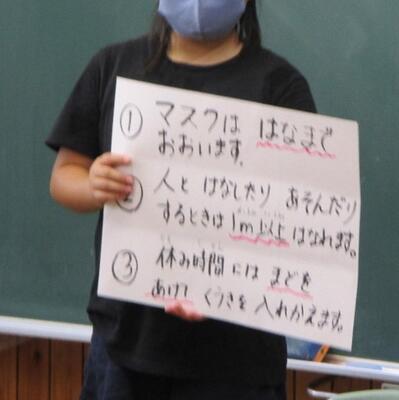 ① マスクは はなまで
おおいます。
② 人と はなしたり あそんだり
するときは 1m以上 はなれます。
③ 休み時間には まどを
あけて くうきを 入れかえます。